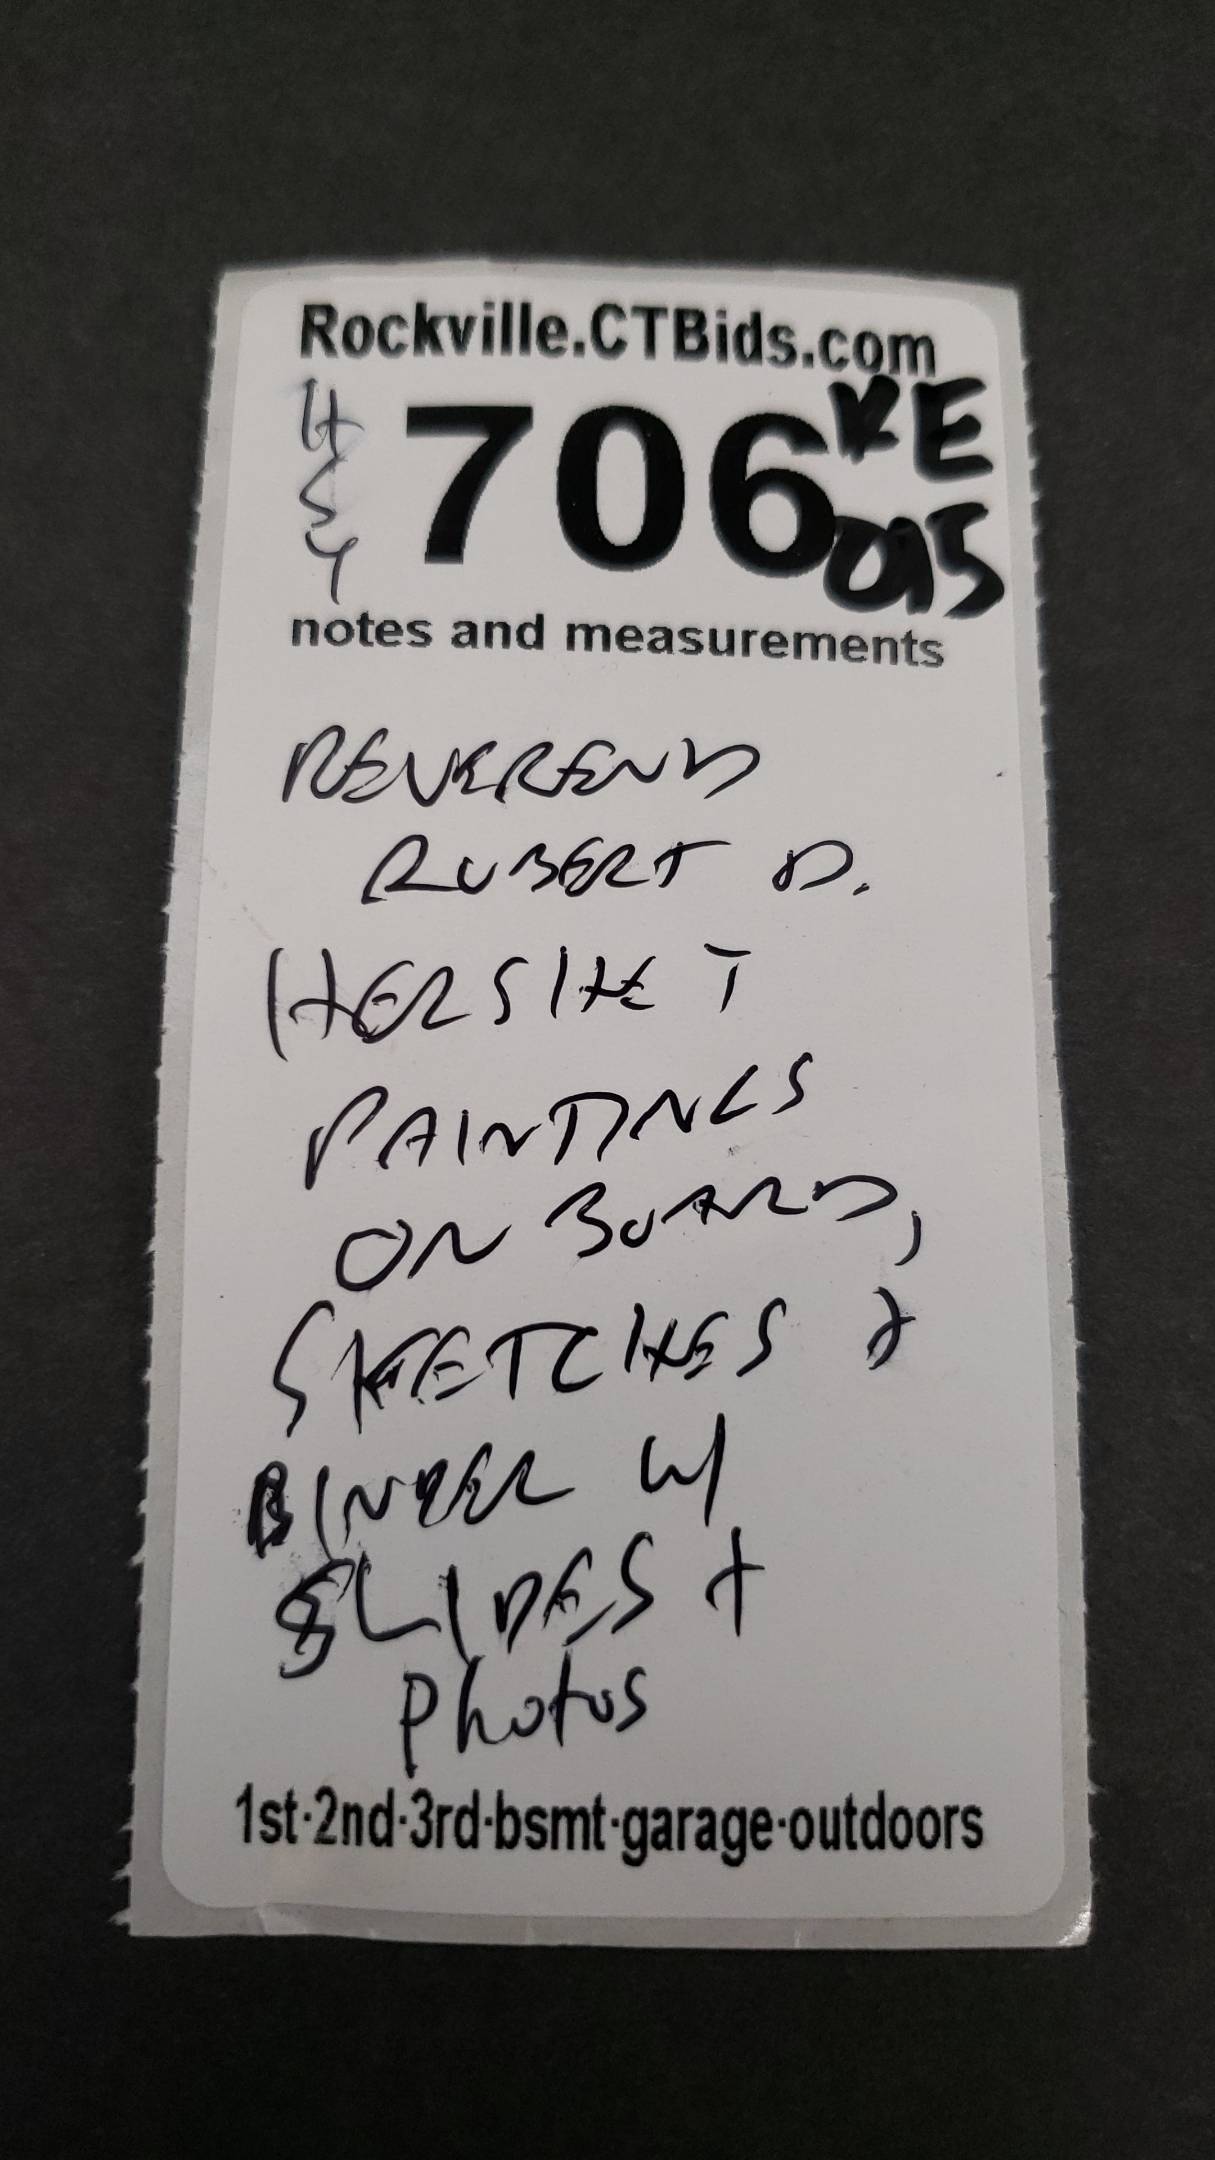 Rockville.CTBids.com
HSY 706 KE 015
notes and measurements
REVEREND
ROBERT D.
HERSHET
PAINTINGS
ON BOARD,
SKETCHES +
BINDER W/
SLIDES +
photos
1st·2nd·3rd·bsmt·garage·outdoors